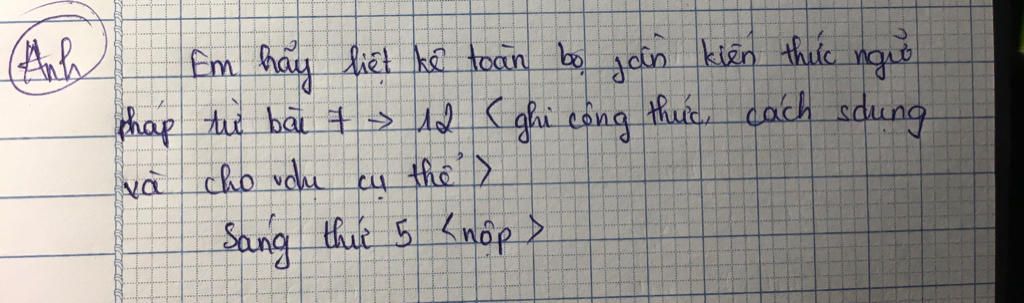 Anh
Em hãy liệt kê toàn bộ kiến thức ngữ
pháp từ bài 7 -> 12 < ghi công thức, cách sdụng
và cho vdụ cụ thể >
Sáng thứ 5 < nộp >